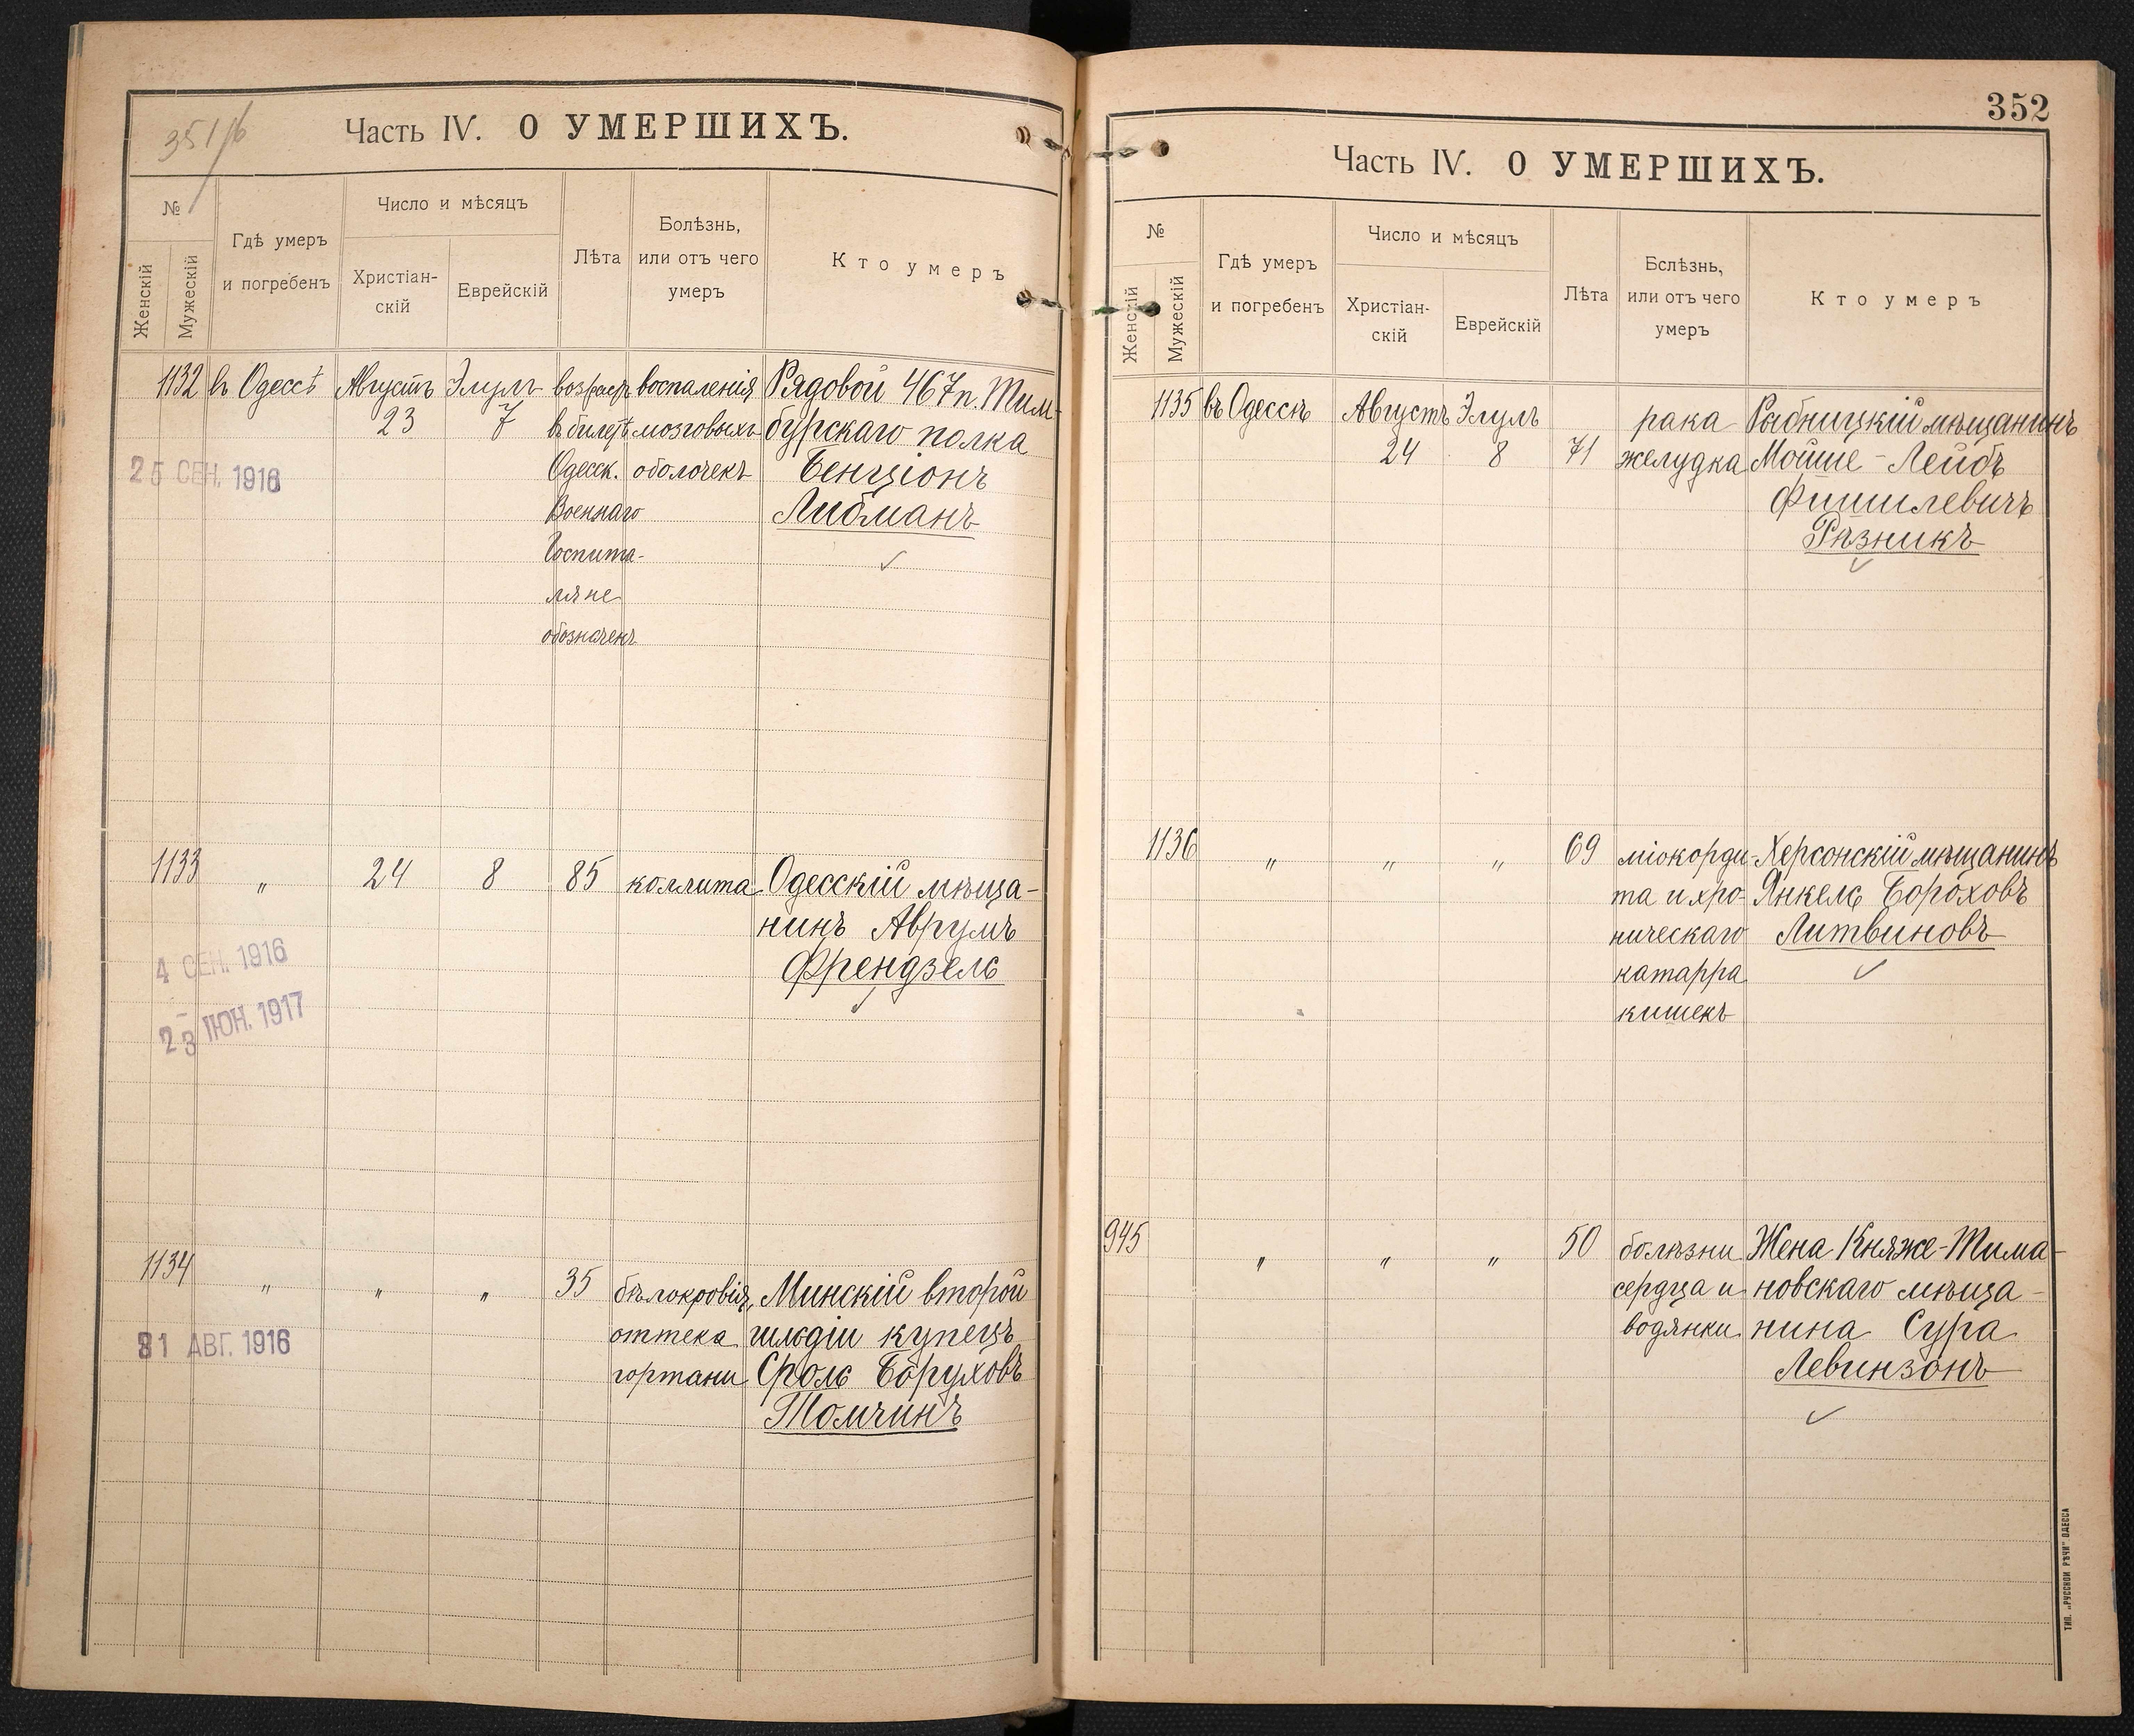 351/б
Часть IV. О УМЕРШИХЪ.
№
Женскій
Мужескій
Гдѣ умеръ
и погребенъ
Число и мѣсяцъ
Христіан-
скій
Еврейскій
Лѣта
Болѣзнь,
или отъ чего
умеръ
Кто умеръ
1132 въ Одессѣ Августъ Элулъ возрастъ воспаленія Рядовой 467 п.
23 7 въ билетѣ мозговыхъ бурскаго полка
25 СЕН. 1916
Одесск. оболочекъ Бенціонъ
Военнаго Либманъ
Госпита-
ля не
обозначенъ
1133 " 24 8 85 коллита Одесскій мѣща-
нинъ Аврумъ
4 СЕН. 1916
Френдзель
23 ІЮН. 1917
1134 " " " 35 бѣлокровія, Минскій второй
31 АВГ. 1916
оттека гильдіи купецъ
гортани Сроль Боруховъ
Томчинъ
352
Часть IV. О УМЕРШИХЪ.
№
Женскій
Мужескій
Гдѣ умеръ
и погребенъ
Число и мѣсяцъ
Христіан-
скій
Еврейскій
Лѣта
Бслѣзнь,
или отъ чего
умеръ
Кто умеръ
1135 въ Одессѣ Августъ Элулъ рака Рыбницкій мѣщанинъ
24 8 71 желудка Мойше-Лейбъ
Фишилевичъ
Рѣзникъ
1136 " " " 69 міокорди- Херсонскій мѣщанинъ
та и хро- Янкель Бороховъ
ническаго Литвиновъ
катарра
кишекъ
945 " " " 50 болѣзни Жена Княже-Тима-
сердца и новскаго мѣща-
водянки нина Сура
Левинзонъ
ТИП. „РУССКОЙ РѢЧИ" ОДЕССА